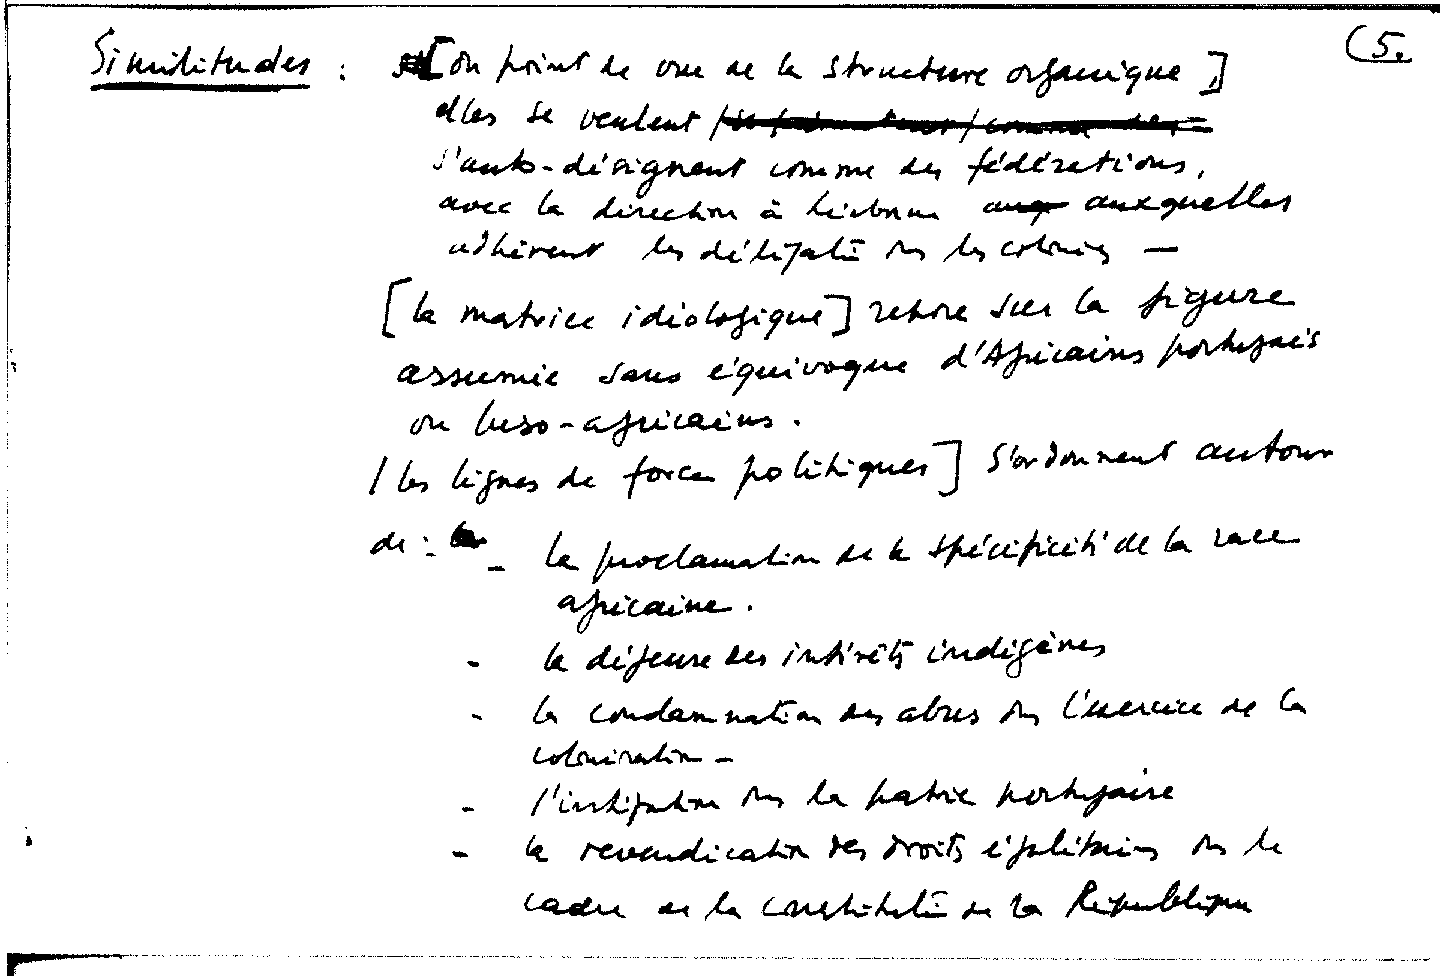 (5.
Similitudes : [du point de vue de la structure organique]
elles se veulent
s'auto-désignent comme des fédérations,
avec la direction à Lisbonne auxquelles
adhèrent les délégatˢ ds les colonies —
[la matrice idéologique] repose sur la figure
assumée sans équivoque d'Africains portugais
ou luso-africains.
[les lignes de force politiques] s'ordonnent autour
de :
- la proclamation de la spécificité de la race
africaine.
- la défense des intérêts indigènes
- la condamnation des abus ds l'exercice de la
colonisation -
- l'intégration ds la patrie portugaise
- la revendication des droits égalitaires ds le
cadre de la constitution de la République